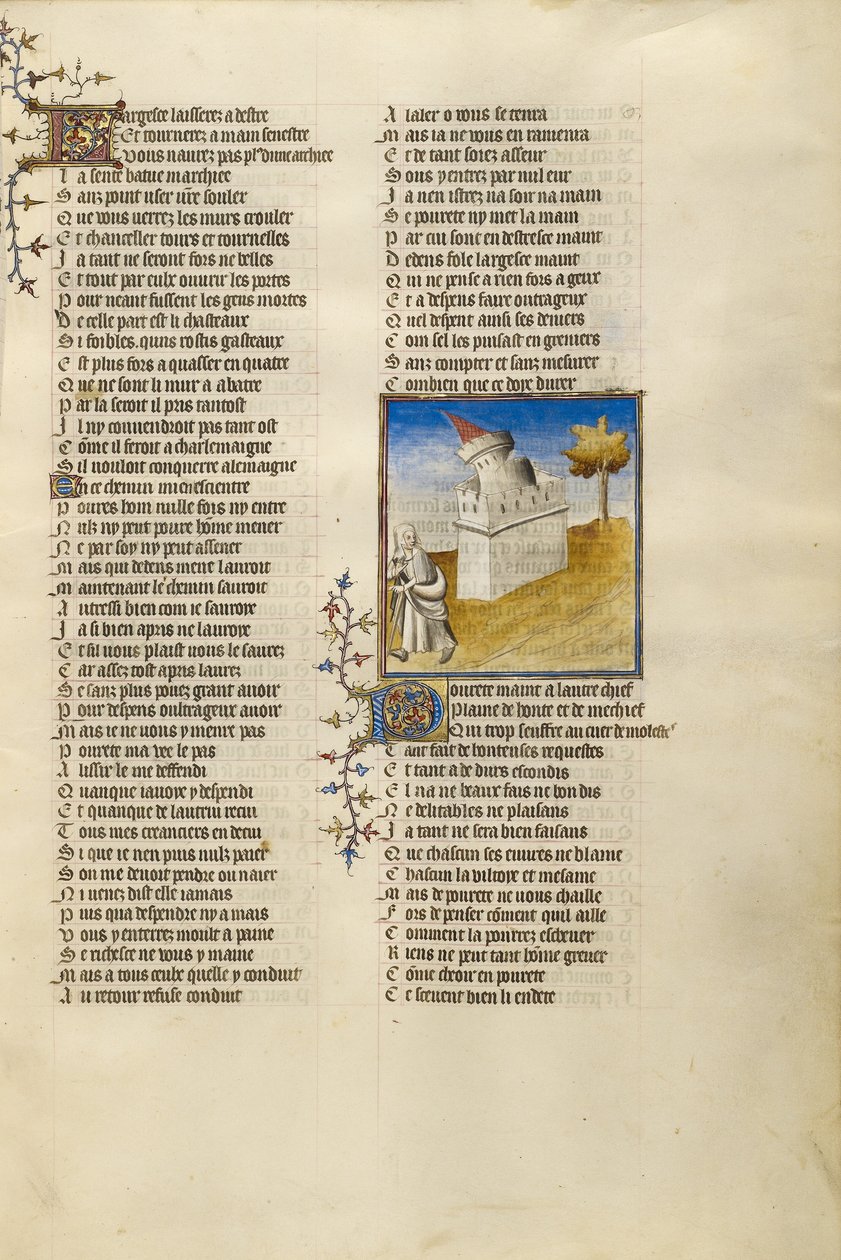 Largesce laisserez a destre
Et tournerez a main senestre
Vous naurez pas plus dune archiee
L a sente batue marchiee
S anz point user vre souler
Q ue vous uerrez les murs crouler
E t chanceller tours et tournelles
J a tant ne seront fors ne belles
E t tout par eulx ouurir les portes
P our neant fussent les gens mortes
D e celle part est li chasteaux
S i foibles. quns rostis gasteaux
E st plus fors a quasser en quatre
Q ue ne sont li mur a abatre
P ar la seroit il pris tantost
J l ny conuendroit pas tant ost
C ōme il feroit a charlemaigne
S il uouloit conquerre alemaigne
En ce chemin mien escientre
P oures hom nulle fois ny entre
N ulz ny peut poure hōme mener
N e par soy ny peut assener
M ais qui dedens mene lauroit
M aintenant le chemin sauroit
A utressi bien com ie sauroie
J a si bien apris ne lauroie
E t sil uous plaist uous le saurez
C ar assez tost apris laurez
S e sanz plus pouez grant auoir
P our despens oultrageux auoir
M ais ie ne uous y menre pas
P ourete ma vee le pas
A lissir le me deffendi
Q uanque iauoie y despendi
E t quanque de lautrui recui
T ous mes creanciers en decui
S i que ie nen puis nulz paier
S on me deuoit pendre ou naier
N i uenez dist elle iamais
P uis qua despendre ny a mais
V ous y enterrez moult a paine
S e richesce ne vous y maine
M ais a tous ceulx quelle y conduit
A u retour refuse conduit
A laler o vous se tenra
M ais ia ne vous en ramenra
E t de tant soiez asseur
S ous y entrez par nul eur
J a nen istrez na soir na main
S e pourete ny met la main
P ar cui sont en destresce maint
D edens fole largesce maint
Q ui ne pense a rien fors a geux
E t a despens faire outrageux
Q uel despent ainsi ses deniers
C om sel les puisast en greniers
S anz compter et sanz mesurer
C ombien que ce doie durer
Pourete maint a lautre chief
Plaine de honte et de meschief
Qui trop seuffre au cuer de molestes
T ant fait de honteuses requestes
E t tant a de durs escondis
E l na ne beaux fais ne bon dis
N e delitables ne plaisans
J a tant ne sera bien faisans
Q ue chascun ses euures ne blame
C hascun la viltoie et mesame
M ais de pourete ne uous chaille
F ors de penser cōment quil aille
C omment la pourrez escheuer
R iens ne peut tant hōme greuer
C ōme cheoir en pourete
C e sceuent bien li endete